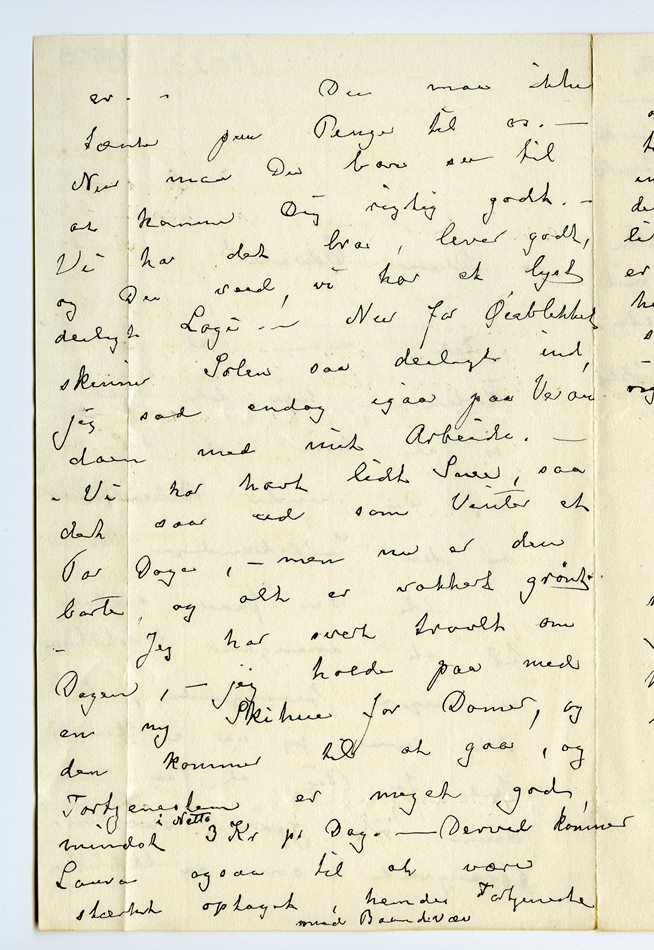 er. - - Du maa ikke
tænke paa Penge til os. —
Nu maa Du bare see til
at komme Dig rigtig godt. -
Vi har det bra, lever godt,
og Du veed, vi har et lyst
deiligt Logi. — Nu for Øieblikket
skinner Solen saa deiligt ind,
jeg sad endog igaar paa Veran
daen med mit Arbeide. —
- Vi har havt lidt Snee, saa
det saae ud som Vinter et
Par Dage, — men nu er den
borte, og alt er vakkert grønt.
- Jeg har svært travlt om
Dagen, — jeg holder paa med
en ny Skihue for Damer, og
den kommer til at gaa, og
Fortjenesten er meget god,
mindst i Netto 3 Kr pr Dag. — Derved kommer
Laura ogsaa til at være
stærkt optaget, hendes Fortjeneste
med Baandvæv